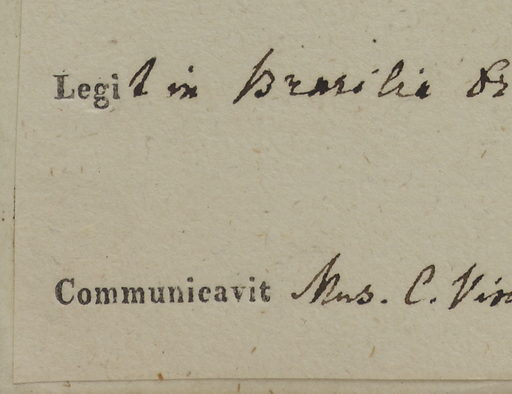 Legit in Brasilia
Communicavit Mus. C. Vin